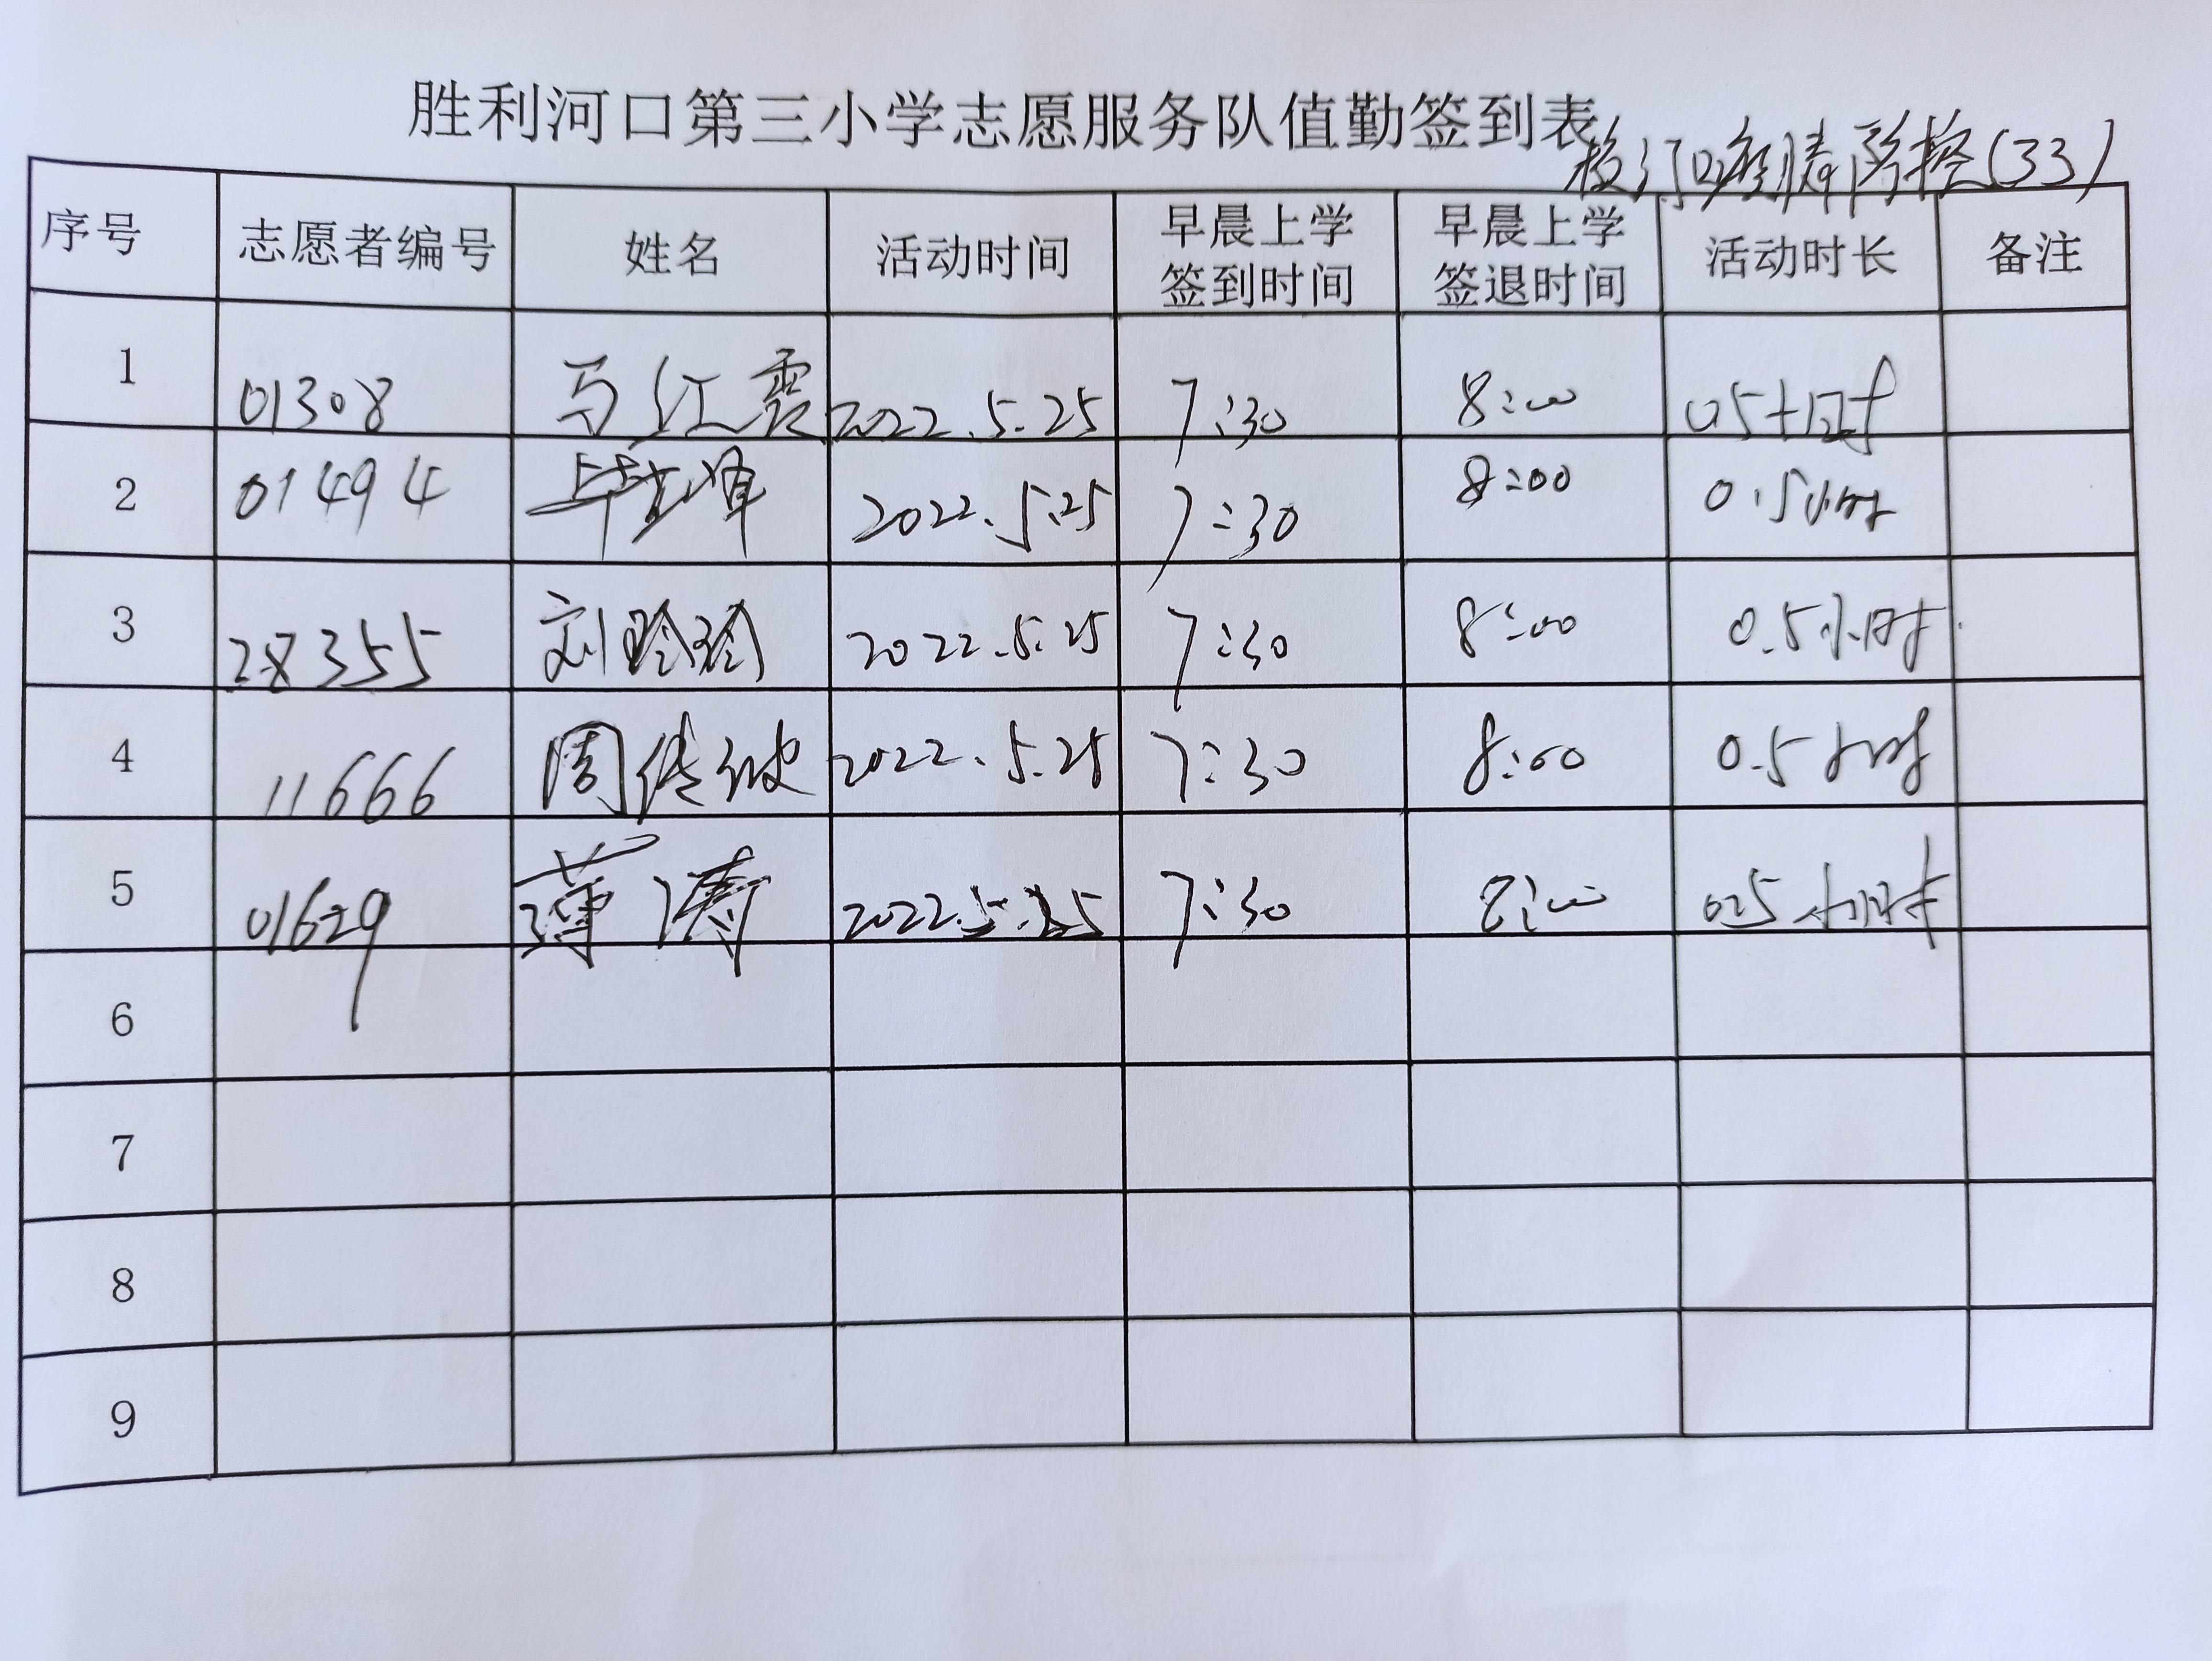 胜利河口第三小学志愿服务队值勤签到表
校门口疫情防控(33)
序号 志愿者编号 姓名 活动时间 早晨上学签到时间 早晨上学签退时间 活动时长 备注
1 01308 马红霞 2022.5.25 7:30 8:00 0.5小时
2 01494 2022.5.25 7:30 8:00 0.5小时
3 28355 刘玲玲 2022.5.25 7:30 8:00 0.5小时
4 11666 周传 2022.5.25 7:30 8:00 0.5小时
5 01629 薄涛 2022.5.25 7:30 8:00 小时
6
7
8
9